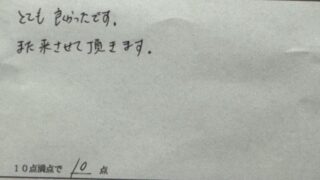 とても良かったです。
また来させて頂きます。
10点満点で 10 点